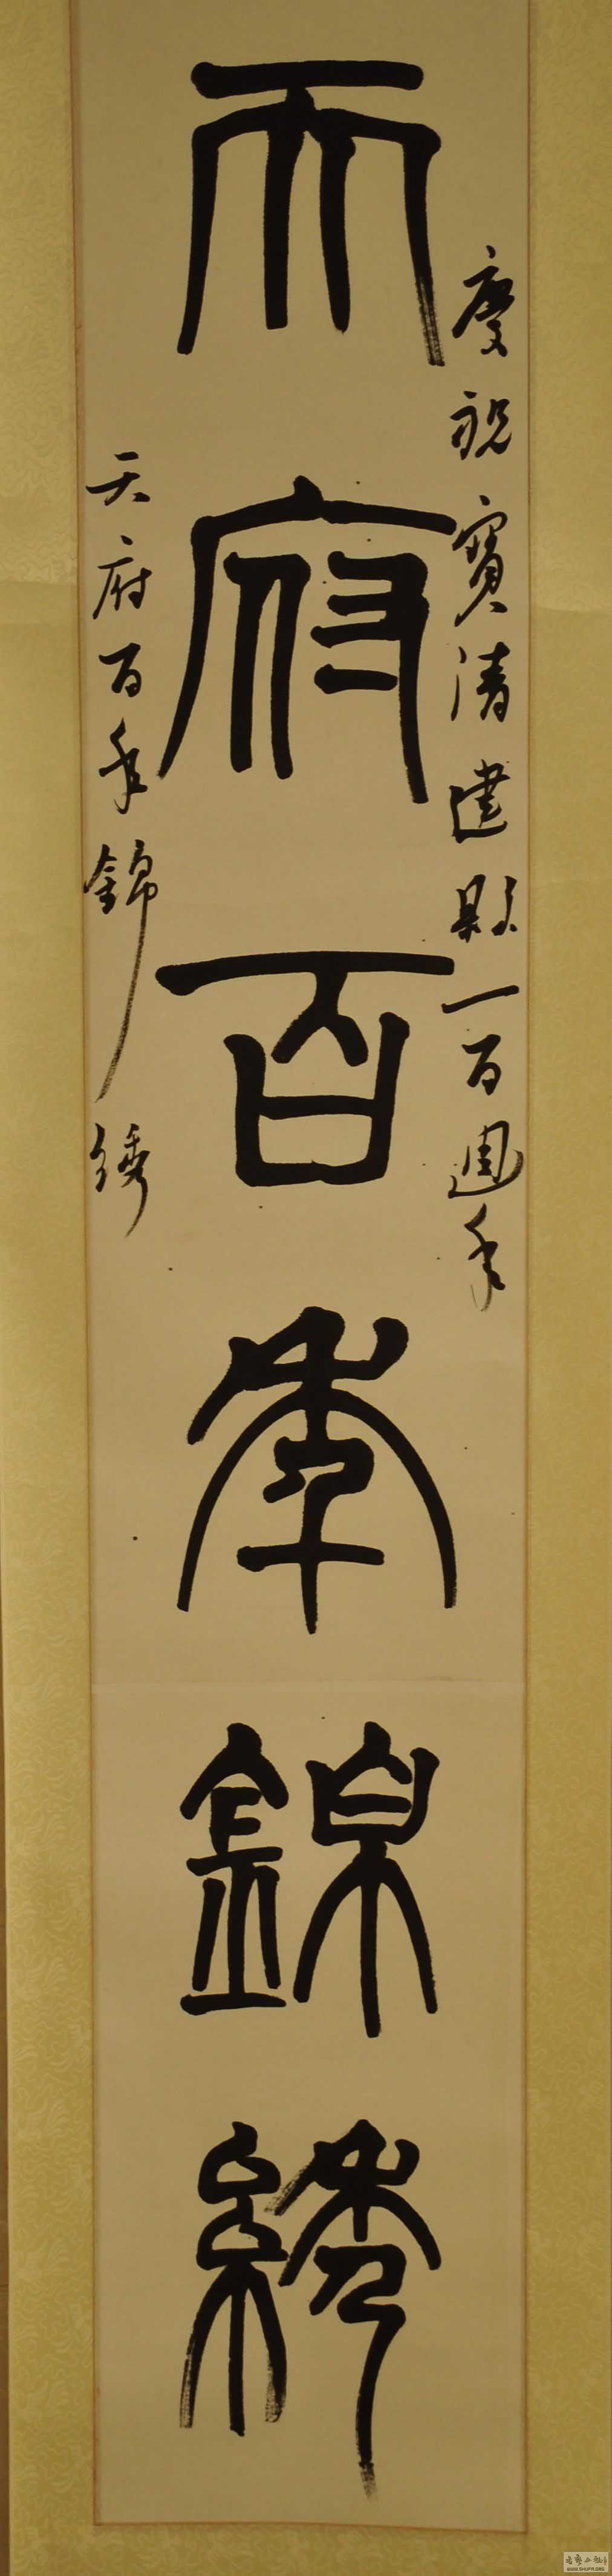 慶祝寶清建縣一百週年
天府百年錦繡
天府百年錦綉
WWW.SHUFA.ORG